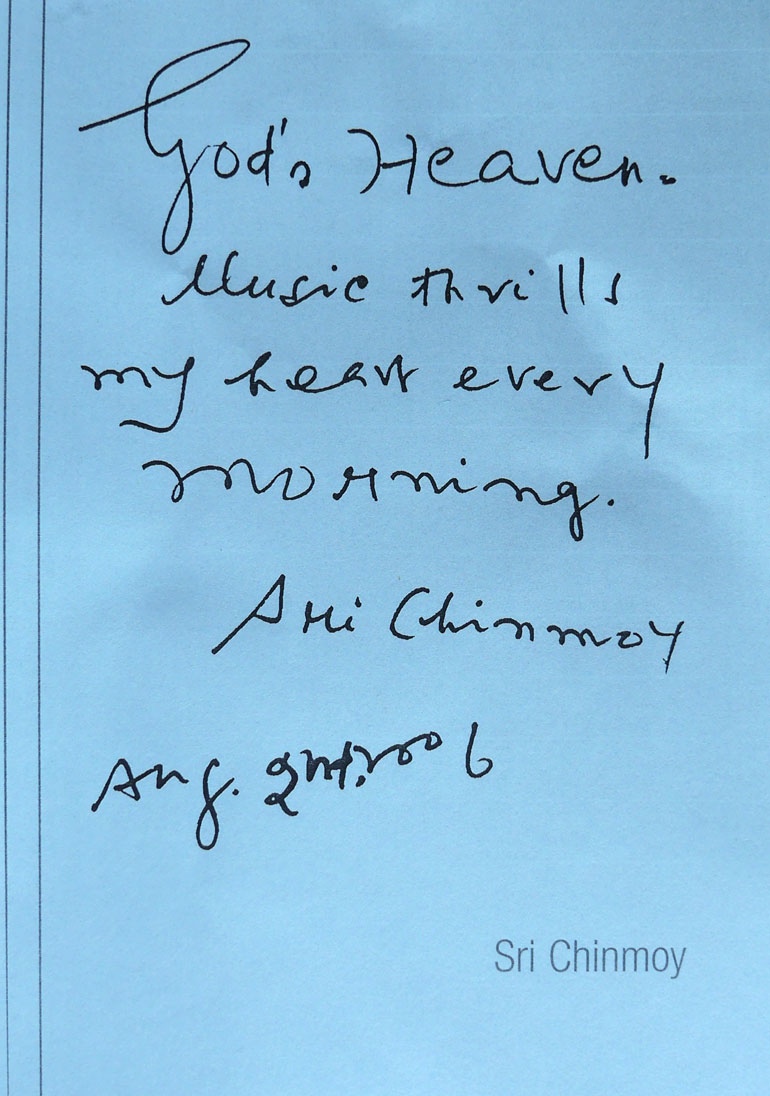 God's Heaven-
Music thrills
my heart every
morning.
Sri Chinmoy
Aug. 2nd, 2006
Sri Chinmoy